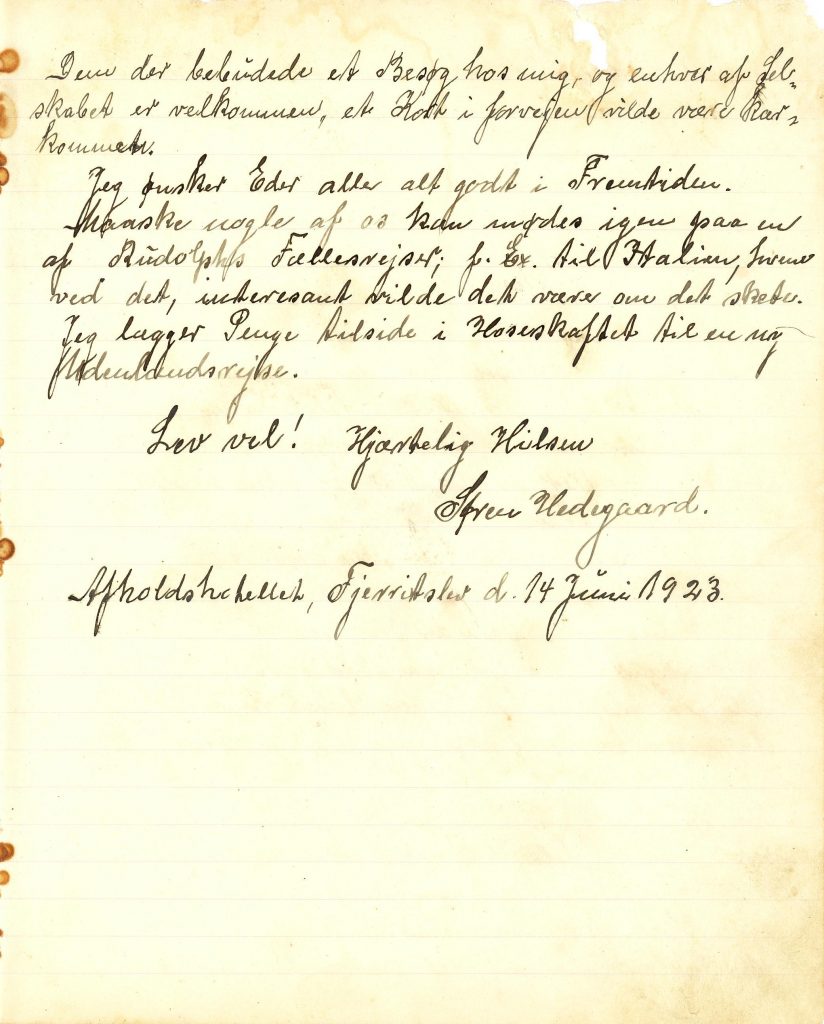 Dem der bebudede et Besøg hos mig, og enhver af Sel-
skabet er velkommen, et Kort i forvejen vilde være kær-
kommen.
Jeg ønsker Eder alle alt godt i Fremtiden.
Maaske nogle af os kan mødes igen paa en
af Rudolphs Fællesrejser, f. Ex. til Italien, hvem
ved det, interesant vilde det være om det skete.
Jeg lægger Penge tilside i Hoseskaftet til en ny
Udenlandsrejse.
Lev vel! Hjærtelig Hilsen
Søren Hedegaard.
Afholdshotellet, Fjerritslev d. 14 Juni 1923.